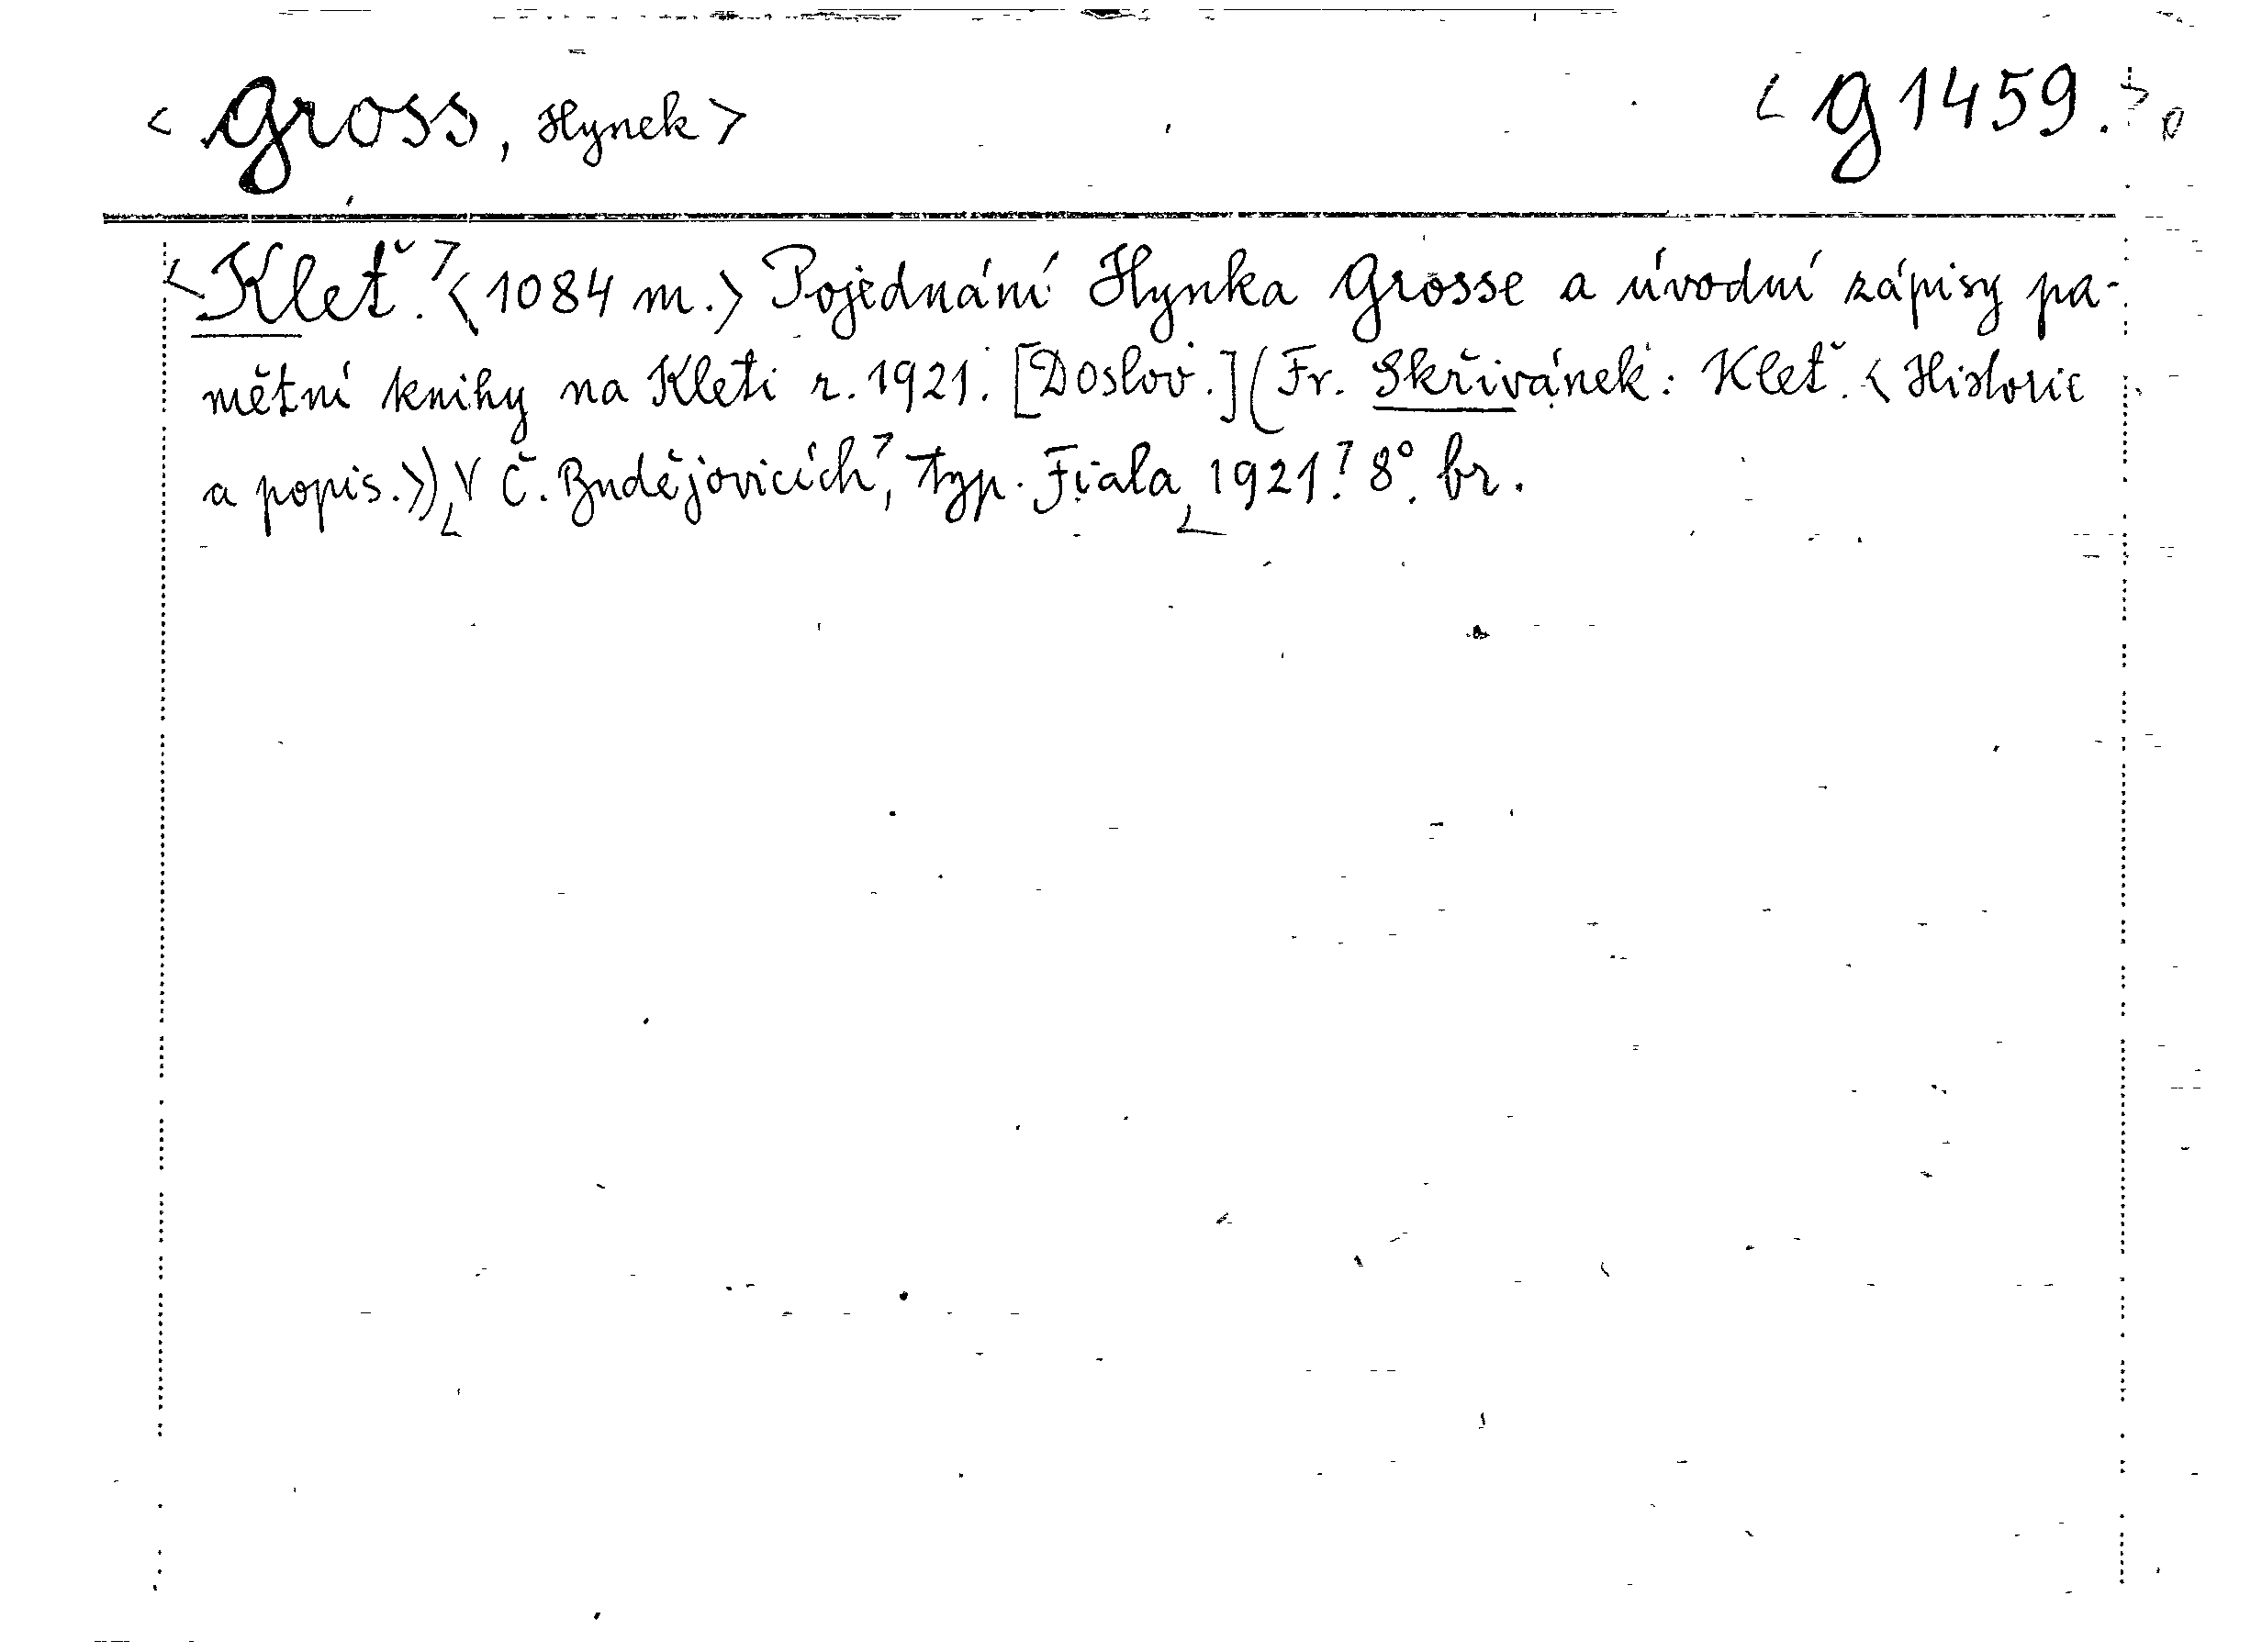 <Gross, Hynek> <G 1459.>
<Kleť.> <1084 m.> Pojednání Hynka Grosse a úvodní zápisy pa-
mětní knihy na Kleti r. 1921. [Doslov.] (Fr. Skřivánek: Kleť. <Historie
a popis.>) <V Č. Budějovicích>, typ. Fiala <1921.> 8°. br.